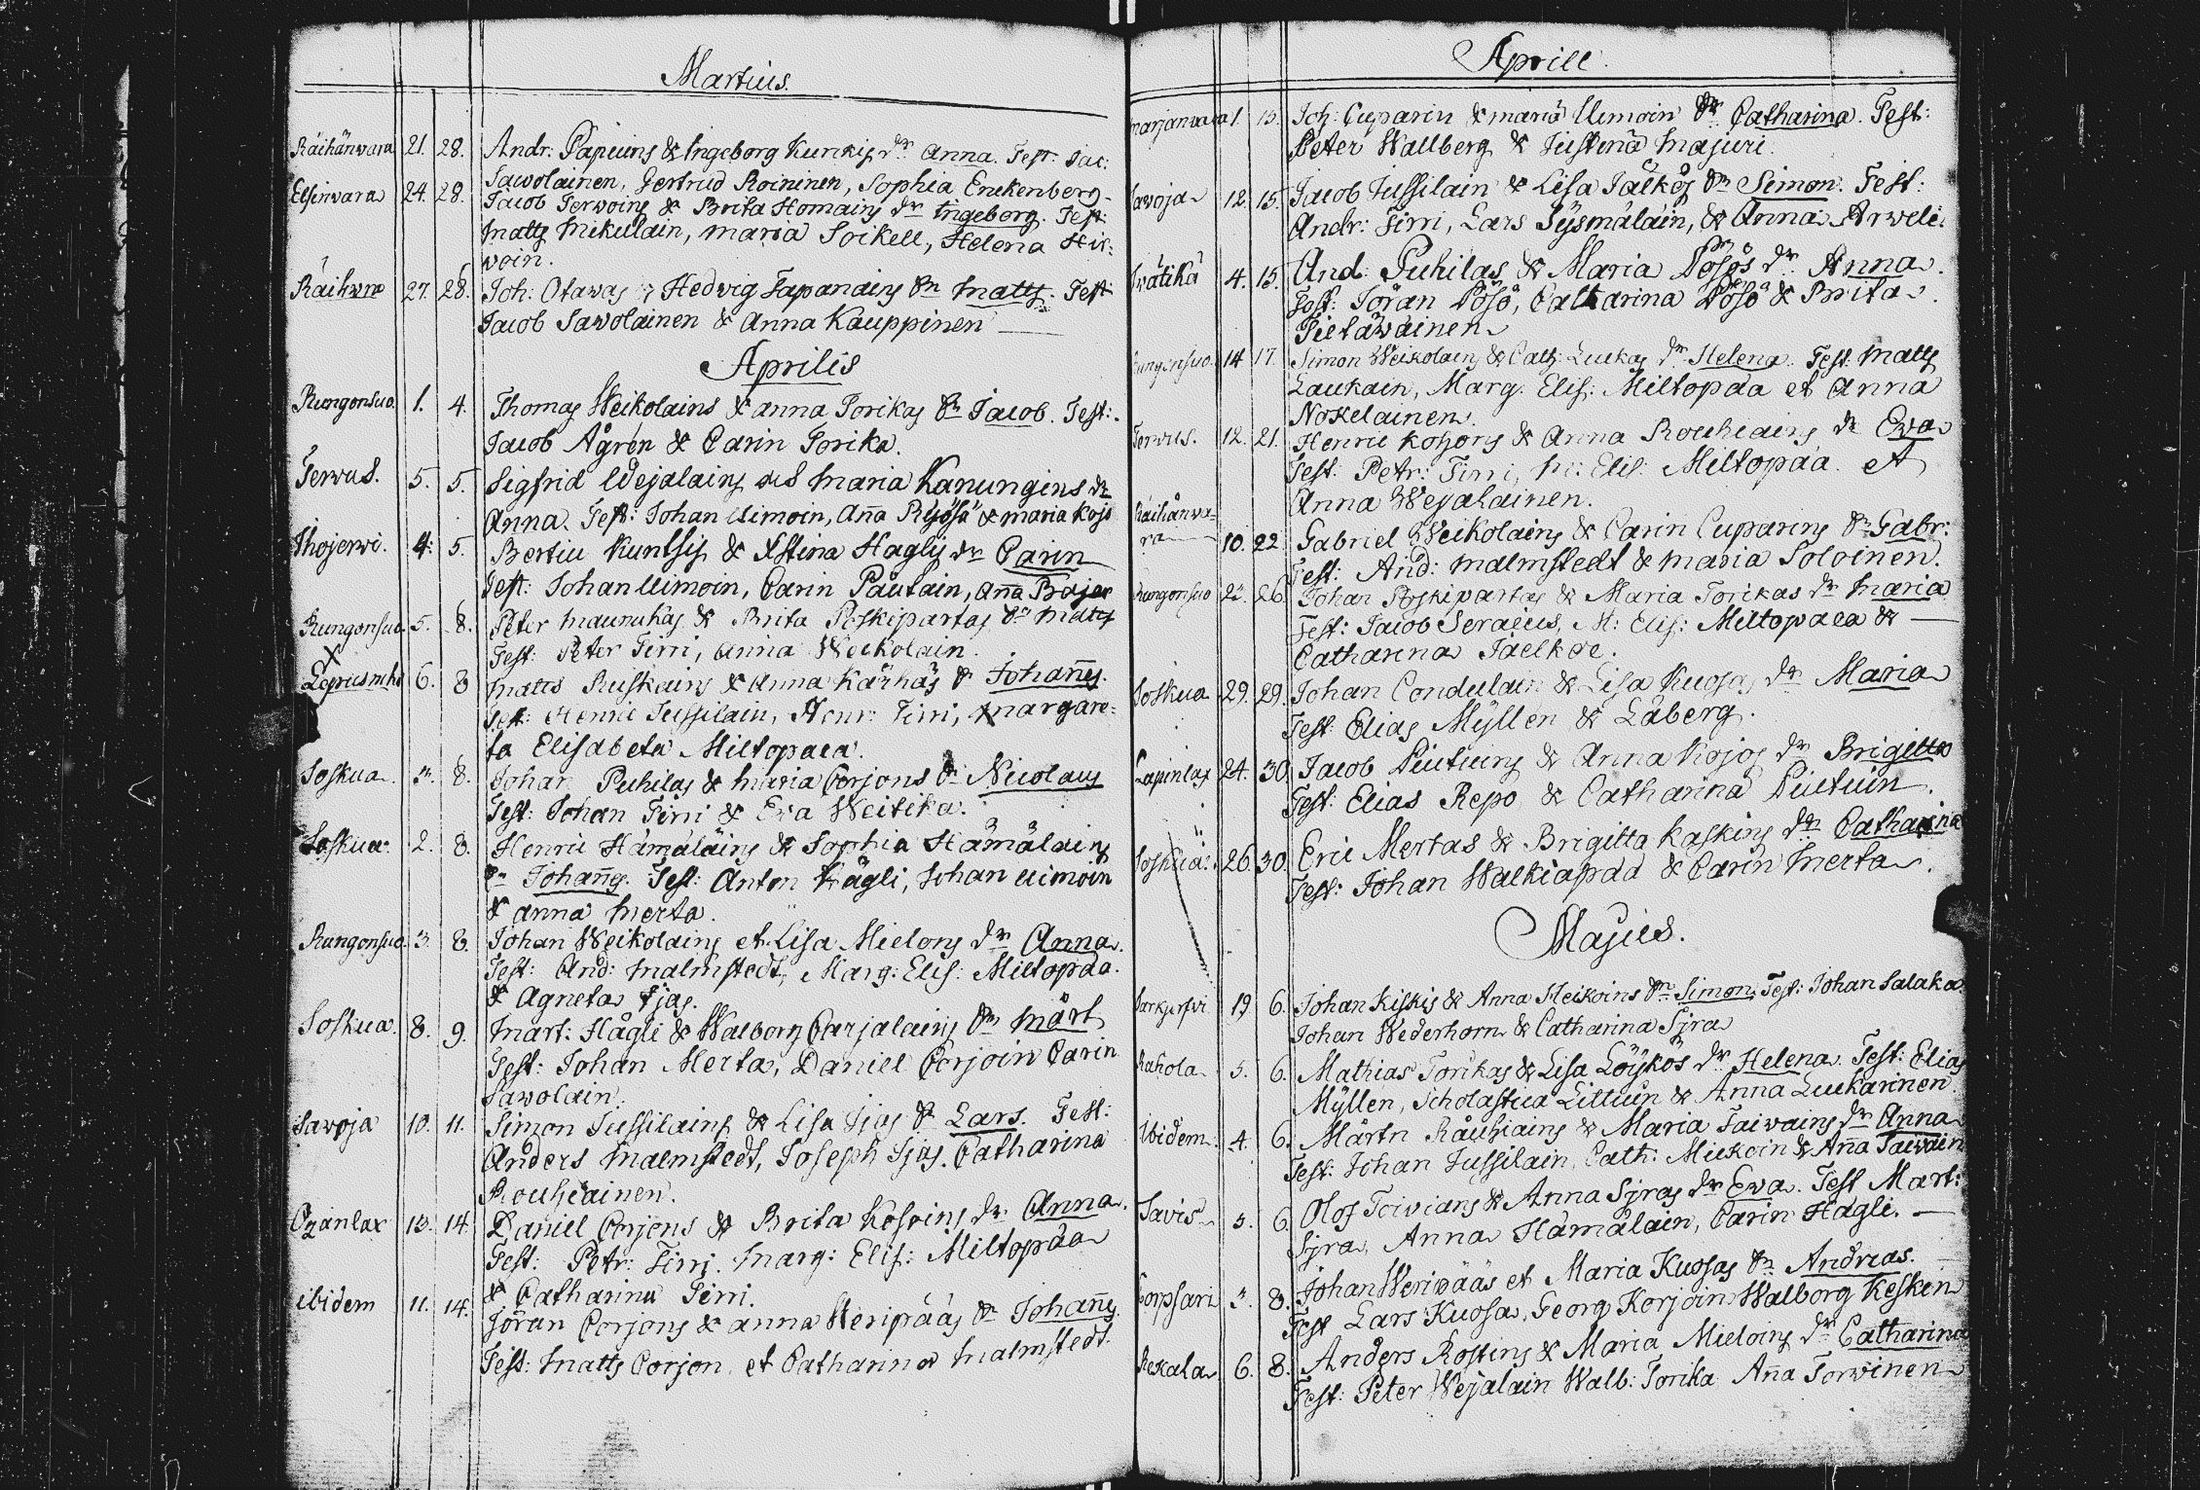 Martius.
Räihänwara 21. 28. Andr: Papuins & Ingeborg Kunkis dr. Anna. Test: Jac:
Sawolainen, Gertrud Roininen, Sophia Enckenberg.
Elsenwara 24. 28. Jacob Terwoins & Brita Homains dr Ingeborg. Test:
Matts Mikulain, Maria Soikell, Helena Hir:
woin.
Räihwre 27. 28. Joh: Otawas & Hedwig Tapanains Sn Matts. Test:
Jacob Sawolainen & Anna Kauppinen
Aprilis
Rungonsuo. 1. 4. Thomas Weikolains & Anna Torikas Sn Jacob. Test:
Jacob Ågren & Carin Torika.
Terwus. 5. 5. Sigfrid Wejalains och Maria Kanungins dr
Anna. Test: Johan Uimoin, Aña Pÿösä & Maria Kojo
Ihojerwi. 4. 5. Bertiu Kuntsis & Xstina Haglis dr Carin
Test: Johan Uimoin, Carin Pautain, Aña
Rungonsuo 5. 8. Peter Maunukas & Brita Poskipartas Sn Matts
Test: Peter Tirri, Anna Weikolain.
6. 8 Matts Ruskains & Anna Kärnäs Sn Johañes.
Test: Henric Jussilain, Henr: Tirri, Margare:
ta Elisabeta Miltopaea.
Soskua. 3. 8. Johan Puhilas & Maria Corjons Sn Nicolaus
Test: Johan Tirri & Ewa Weitika.
Soskua. 2. 8. Henric Hämäläins & Sophia Hämäläins
Sn Johañes. Test: Anton Hägli, Johan Uimoin
& Anna Merta.
Rungonsuo. 3. 8. Johan Weikolains et Lisa Mielons dr Anna.
Test: And: Malmstedt, Marg: Elis: Miltopaa.
& Agneta Sjas.
Soskua. 8. 9. Mart: Hägli & Walborg Carjalains Sn Mårt
Test: Johan Merta, Daniel Corjoin Carin
Sawolain.
Savoja 10. 11. Simon Jussilains & Lisa Sjas Sn Lars. Test:
Anders Malmstedt, Joseph Sjas. Catharina
Rouhiainen.
13. 14. Daniel Corjons & Brita Kosoins dr Anna.
Test: Petr: Tirri. Marg: Elis: Miltopaa
& Catharina Tirri.
ibidem 11. 14. Jöran Corjons & Anna Weripääs Sn Johañes.
Test: Matts Corjon et Catharina Malmstedt.
Aprill.
Marjanwara 1. 15. Joh: Cuparin & Maria Uimoin dr Catharina. Test:
Peter Wallberg & Justina Majuri.
Savoja 12. 15. Jacob Jussilain & Lisa Jälkös Sn Simon. Test:
Andr: Tirri, Lars Sÿsmäläin, & Anna Arweli.
4. 15. And: Puhilas & Maria Pösös dr. Anna.
Test: Jöran Pösö, Catharina Pösö & Brita
Pietäwäinen
Rungonsuo. 14 17. Simon Weikolains & Cath: Luckas dr Helena. Test: Matts
Laukain, Marg. Elis: Miltopaa et Anna
Nokelainen.
Terwus. 12. 21. Henric Kohons & Anna Rouhiains dr Ewa
Test: Petr: Tirri, M: Elis: Miltopaa. et
Anna Wejalainen.
Räihänwa-
ra 10. 22. Gabriel Weikolains & Carin Cuparins Sn Gabr:
Test: And: Malmstedt & Maria Soloinen.
Rungonsuo 26. Johan Poskipartas & Maria Torikas dr Maria
Test: Jacob Seraeus, M: Elis: Miltopaea &
Catharina Jaelkoe.
Soskua 29. 29. Johan Condulain & Lisa Kuosas dr Maria
Test: Elias Mÿllen & Låberg.
Lapinlax 24. 30. Jacob Piutuins & Anna Kojos dr Brigitta
Test: Elias Repo & Catharina Piutuin.
Soskua. 26. 30. Eric Mertas & Brigitta Kaskins dr Catharina
Test: Johan Walkiapää & Carin Merta.
Majus.
19 6. Johan Kiskis & Anna Heikoins Sn Simon. Test: Johan Salaka
Johan Wederhorn & Catharina Sjra
Rahola 5. 6. Mathias Torikas & Lisa Löÿkös dr Helena. Test: Elias
Mÿllen, Scholastica Littuin & Anna Luckarinen
Ibidem. 4. 6. Mårtn Råuhiains & Maria Taiwains dr Anna
Test: Johan Jussilain, Cath: Mickoin & Aña Taiwain
Savis 5. 6. Olof Toivians & Anna Sjras dr Ewa. Test Mart:
Sjra, Anna Hämäläin, Carin Hägli.
Corpsari 3. 8. Johan Weripääs et Maria Kuosas Sn Andreas.
Test Lars Kuosa, Georg Korjoin Walborg Kesken
Rekala 6. 8. Anders Rostins & Maria Mieloins dr Catharina
Test: Peter Wejalain Walb: Torika Aña Torwinen